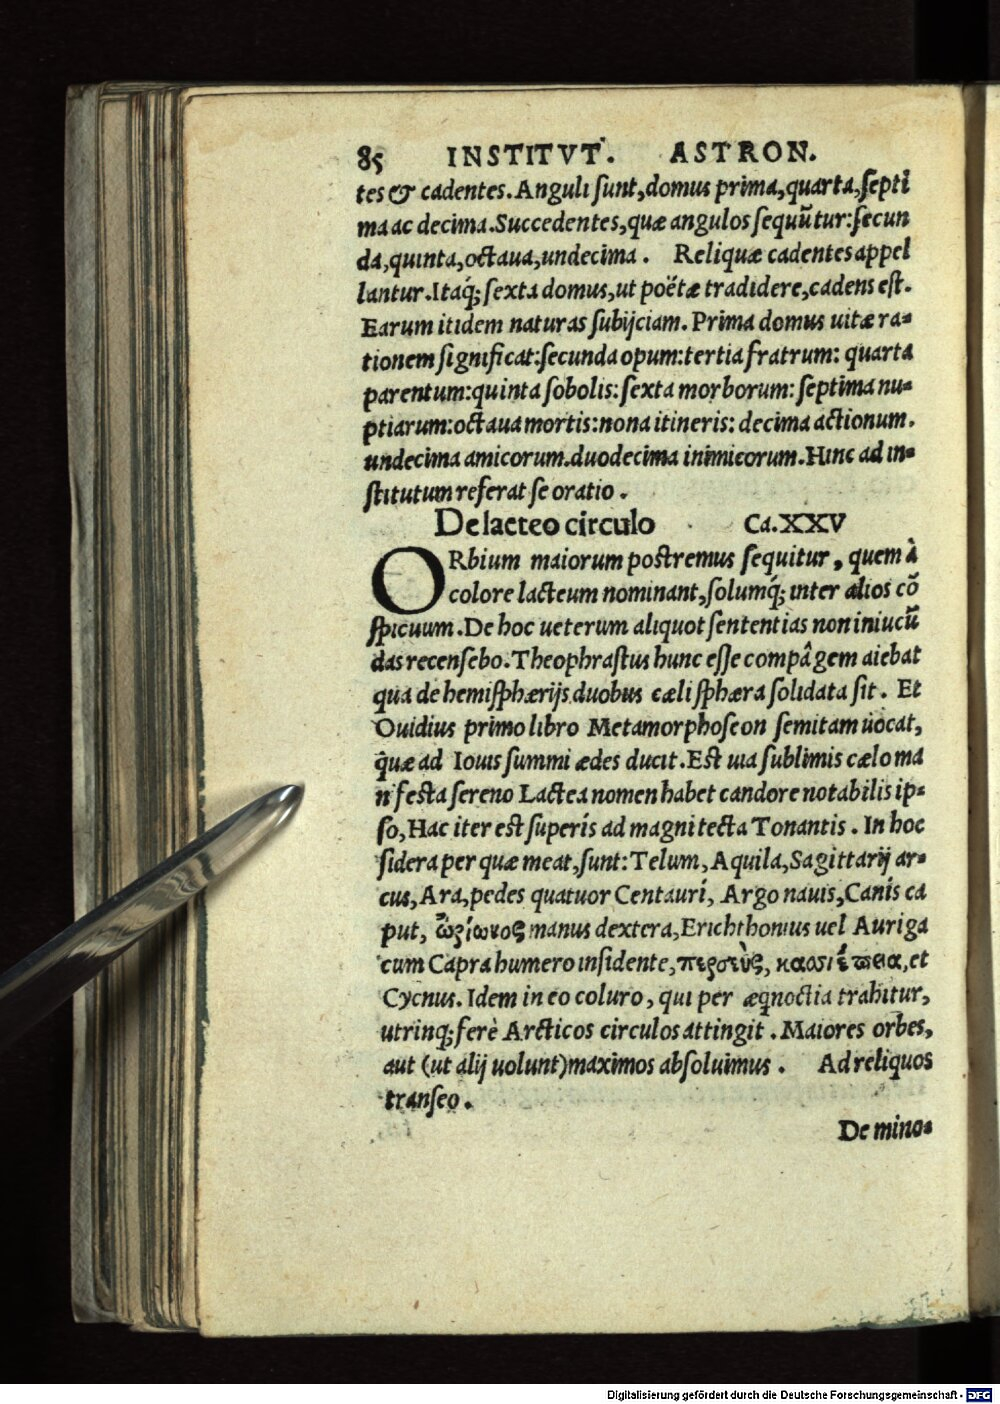 85 INSTITVT. ASTRON.
tes & cadentes. Anguli ſunt, domus prima, quarta, ſepti
ma ac decima. Succedentes, quæ angulos ſequũtur: ſecun
da, quinta, octaua, undecima. Reliquæ cadentes appel
lantur. Itaq́; ſexta domus, ut poëtæ tradidere, cadens eſt.
Earum itidem naturas ſubijciam. Prima domus uitæ ra-
tionem ſignificat: ſecunda opum: tertia fratrum: quarta
parentum: quinta ſobolis: ſexta morborum: ſeptima nu-
ptiarum: octaua mortis: nona itineris: decima actionum.
undecima amicorum. duodecima inimicorum. Hinc ad in-
ſtitutum referat ſe oratio.
De lacteo circulo Ca. XXV
ORbium maiorum poſtremus ſequitur, quem à
colore lacteum nominant, ſolumq́; inter alios cõ
ſpicuum. De hoc ueterum aliquot ſententias non iniucũ
das recenſebo. Theophraſtus hunc eſſe compâgem aiebat
qua de hemiſphærijs duobus cæli ſphæra ſolidata ſit. Et
Ouidius primo libro Metamorphoſeon ſemitam uocat,
quæ ad Iouis ſummi ædes ducit. Eſt uia ſublimis cælo ma
nifeſta ſereno Lactea nomen habet candore notabilis ip-
ſo, Hac iter eſt ſuperis ad magni tecta Tonantis. In hoc
ſidera per quæ meat, ſunt: Telum, Aquila, Sagittarij ar-
cus, Ara, pedes quatuor Centauri, Argo nauis, Canis ca
put, ὠρίωνος manus dextera, Erichthonius uel Auriga
cum Capra humero inſidente, περσεὺς, κασσιέπεια, et
Cycnus. Idem in eo coluro, qui per æqnoctia trahitur,
utrinq; ferè Arcticos circulos attingit. Maiores orbes,
aut (ut alij uolunt) maximos abſoluimus. Ad reliquos
tranſeo.
De mino-
Digitalisierung gefördert durch die Deutsche Forschungsgemeinschaft - DFG